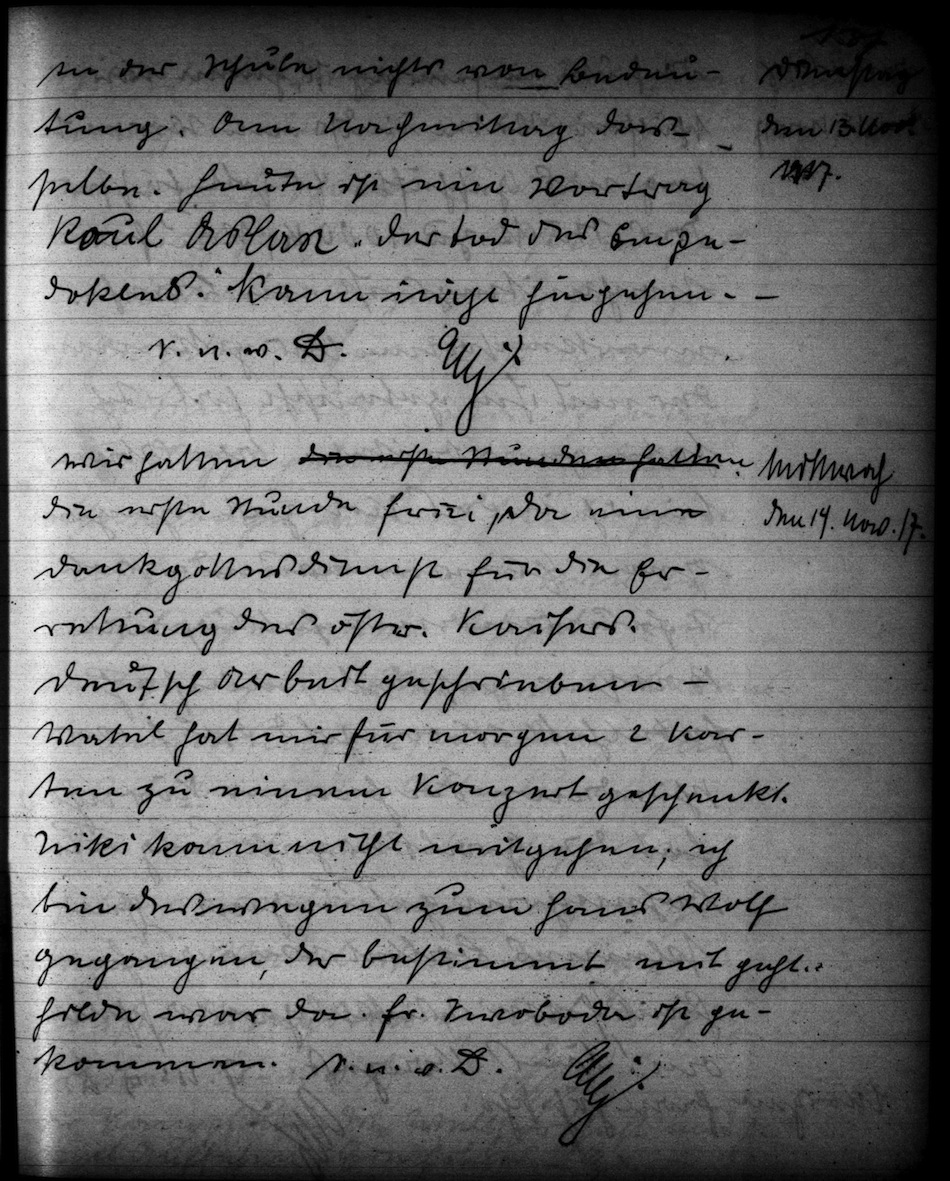 In der Schule nichts von Bedeu-
tung. Am Nachmittag das-
selbe. Heute ist ein Vortrag
Raul Aslan "Der Tod des Empe-
dokles." Kann nicht hingehen. -
S. n. w. D.
Dienstag
den 13. Nov.
1917.
Wir hatten die erste Stunden hatten
die erste Stunde frei, da eine
Dankgottesdienst für die Er-
rettung des öster. Kaisers.
Deutsch Arbeit geschrieben -
Watzl hat mir für morgen 2 Kar-
ten zu einem Konzert geschenkt.
Niki kann nicht mitgehen; ich
bin deswegen zum Hans Wolf
gegangen, der bestimmt mit geht.
Hilde war da. Fr. Swoboda ist ge-
kommen. S. n. w. D.
Mittwoch
den 14. Nov. 17.